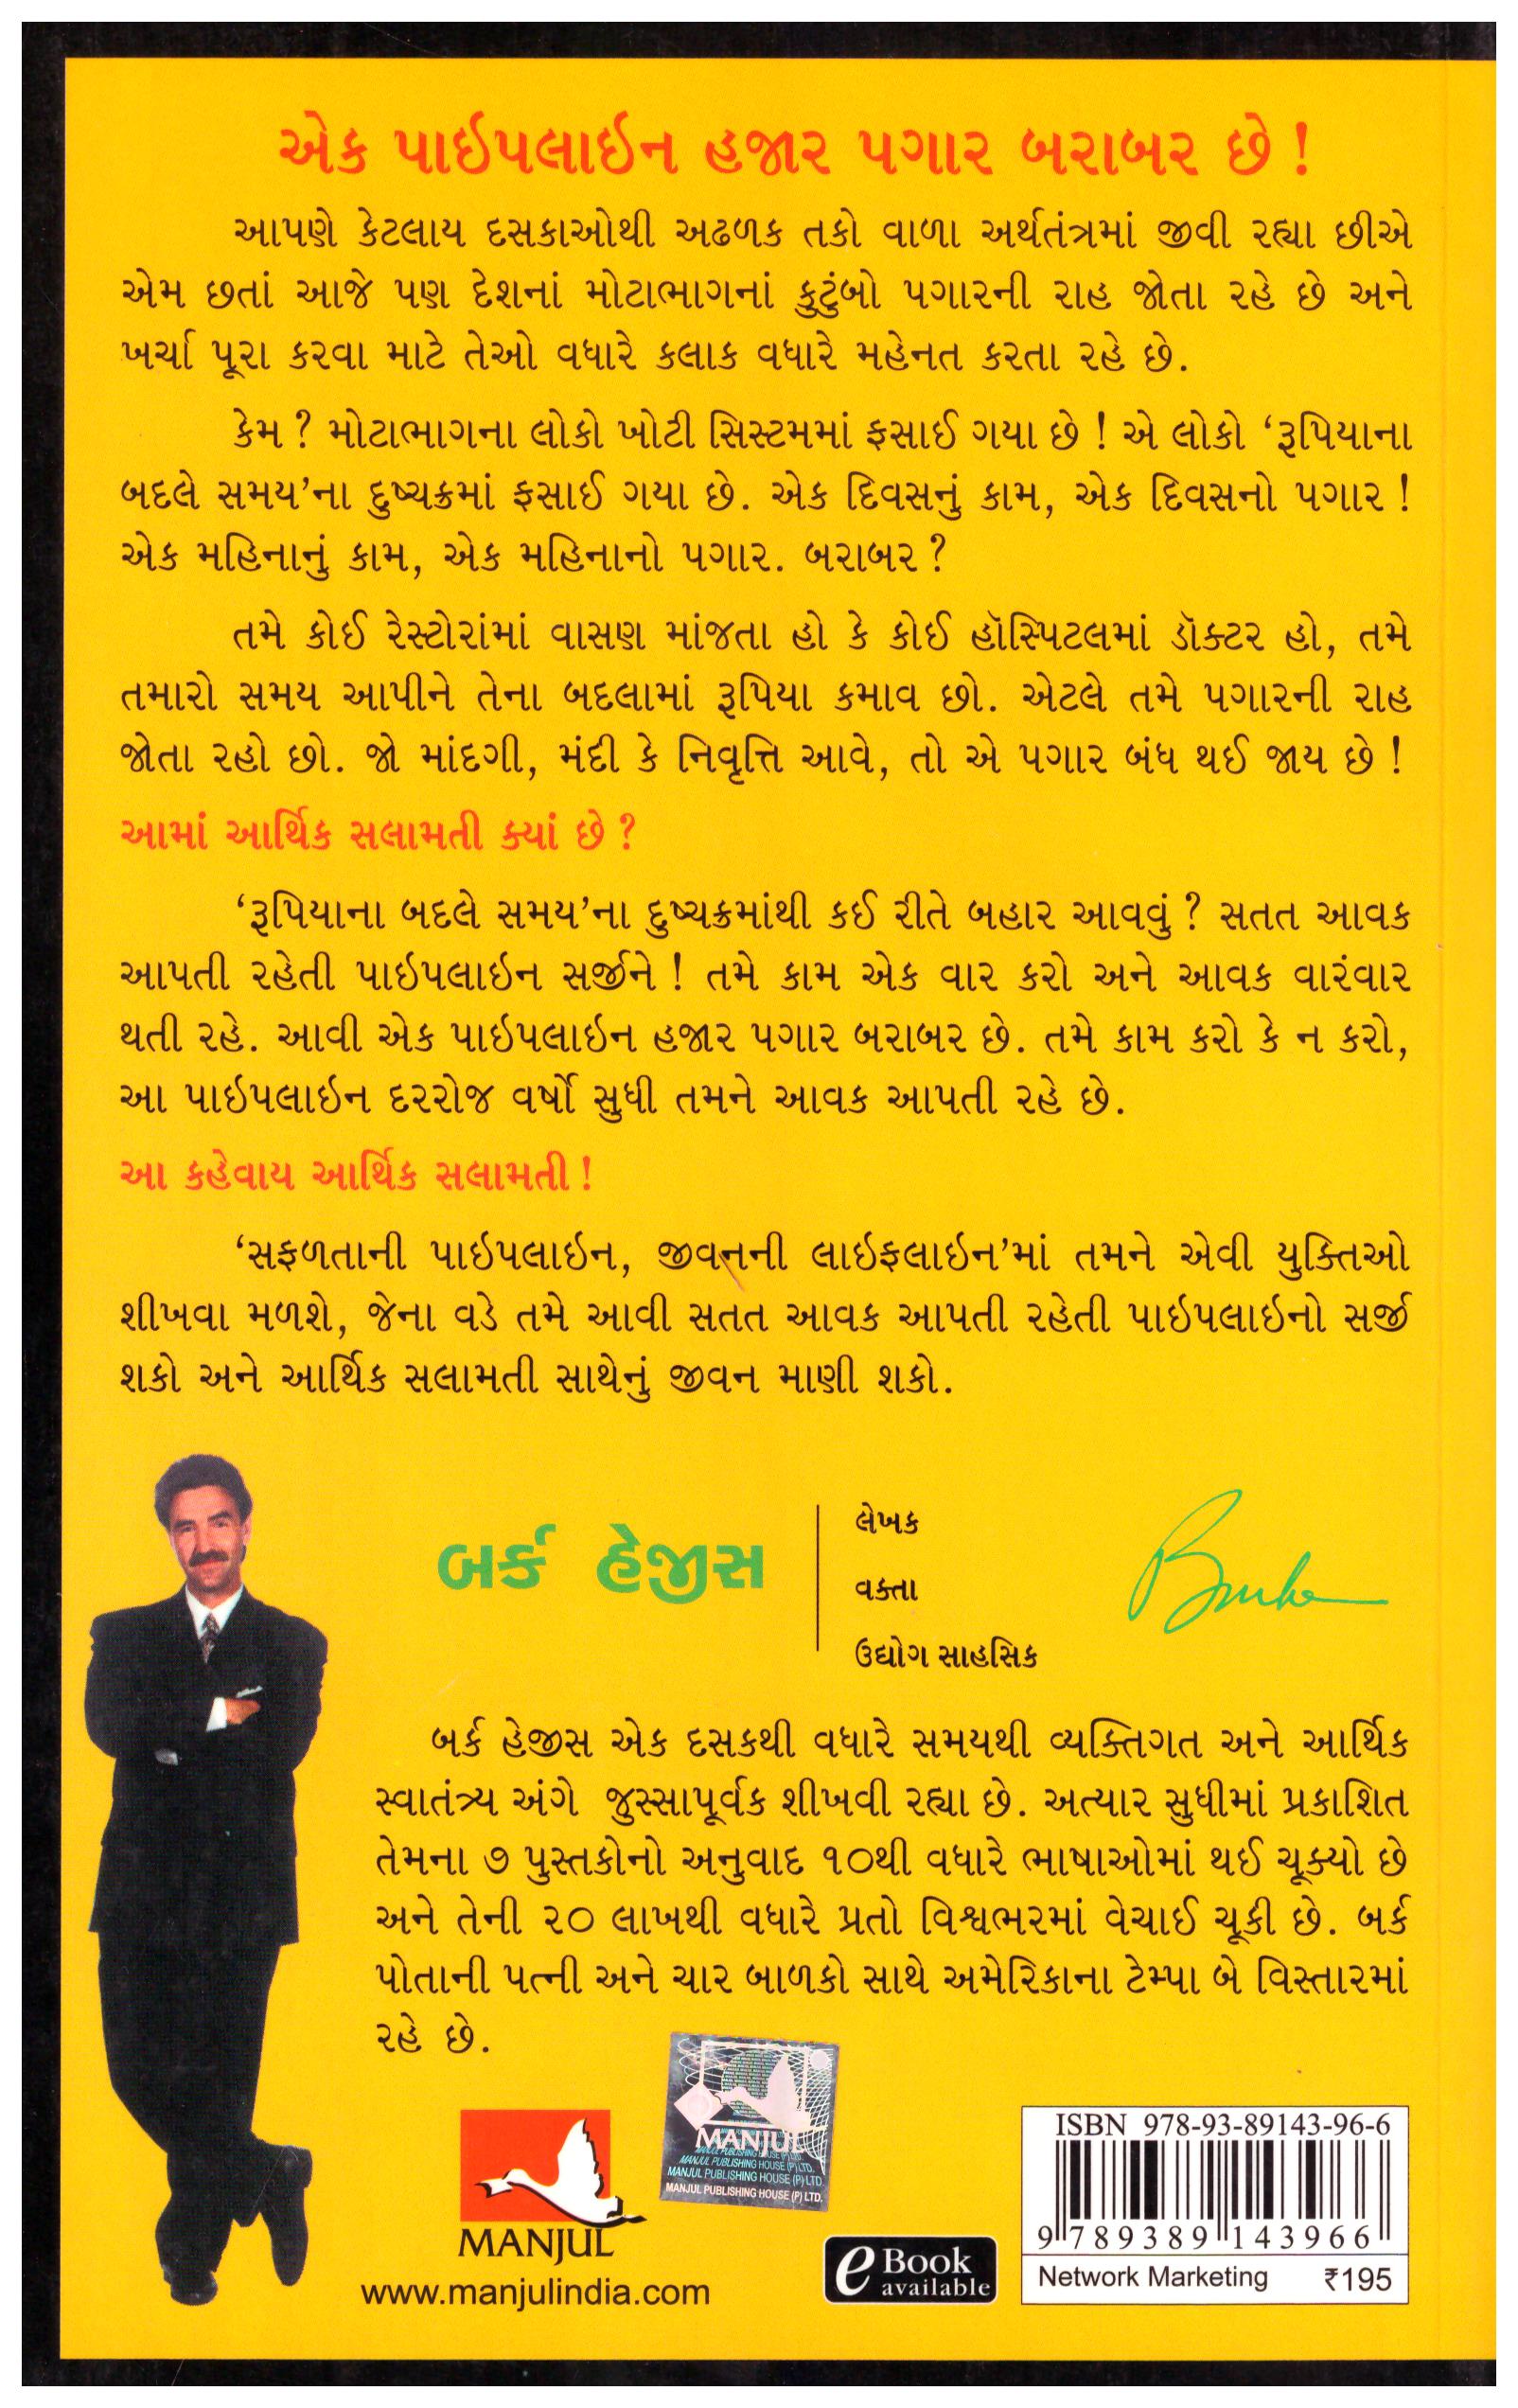 એક પાઇપલાઇન હજાર પગાર બરાબર છે !
આપણે કેટલાય દસકાઓથી અઢળક તકો વાળા અર્થતંત્રમાં જીવી રહ્યા છીએ
એમ છતાં આજે પણ દેશનાં મોટાભાગનાં કુટુંબો પગારની રાહ જોતા રહે છે અને
ખર્ચા પૂરા કરવા માટે તેઓ વધારે કલાક વધારે મહેનત કરતા રહે છે.
કેમ ? મોટાભાગના લોકો ખોટી સિસ્ટમમાં ફસાઈ ગયા છે ! એ લોકો ‘રૂપિયાના
બદલે સમય’ના દુષ્ચક્રમાં ફસાઈ ગયા છે. એક દિવસનું કામ, એક દિવસનો પગાર !
એક મહિનાનું કામ, એક મહિનાનો પગાર. બરાબર ?
તમે કોઈ રેસ્ટોરાંમાં વાસણ માંજતા હો કે કોઈ હૉસ્પિટલમાં ડૉક્ટર હો, તમે
તમારો સમય આપીને તેના બદલામાં રૂપિયા કમાવ છો. એટલે તમે પગારની રાહ
જોતા રહો છો. જો માંદગી, મંદી કે નિવૃત્તિ આવે, તો એ પગાર બંધ થઈ જાય છે !
આમાં આર્થિક સલામતી ક્યાં છે ?
‘રૂપિયાના બદલે સમય’ના દુષ્ચક્રમાંથી કઈ રીતે બહાર આવવું ? સતત આવક
આપતી રહેતી પાઇપલાઇન સર્જીને ! તમે કામ એક વાર કરો અને આવક વારંવાર
થતી રહે. આવી એક પાઇપલાઇન હજાર પગાર બરાબર છે. તમે કામ કરો કે ન કરો,
આ પાઇપલાઇન દરરોજ વર્ષો સુધી તમને આવક આપતી રહે છે.
આ કહેવાય આર્થિક સલામતી !
‘સફળતાની પાઇપલાઇન, જીવનની લાઇફલાઇન’માં તમને એવી યુક્તિઓ
શીખવા મળશે, જેના વડે તમે આવી સતત આવક આપતી રહેતી પાઇપલાઇનો સર્જી
શકો અને આર્થિક સલામતી સાથેનું જીવન માણી શકો.
બર્ક હેજીસ
લેખક
વક્તા
ઉદ્યોગ સાહસિક
Burke
બર્ક હેજીસ એક દસકથી વધારે સમયથી વ્યક્તિગત અને આર્થિક
સ્વાતંત્ર્ય અંગે જુસ્સાપૂર્વક શીખવી રહ્યા છે. અત્યાર સુધીમાં પ્રકાશિત
તેમના ૭ પુસ્તકોનો અનુવાદ ૧૦થી વધારે ભાષાઓમાં થઈ ચૂક્યો છે
અને તેની ૨૦ લાખથી વધારે પ્રતો વિશ્વભરમાં વેચાઈ ચૂકી છે. બર્ક
પોતાની પત્ની અને ચાર બાળકો સાથે અમેરિકાના ટેમ્પા બે વિસ્તારમાં
રહે છે.
MANJUL
MANJUL PUBLISHING HOUSE (P) LTD.
MANJUL PUBLISHING HOUSE (P) LTD.
MANJUL PUBLISHING HOUSE (P) LTD.
MANJUL
www.manjulindia.com
eBook
available
ISBN 978-93-89143-96-6
9 789389 143966
Network Marketing ₹195